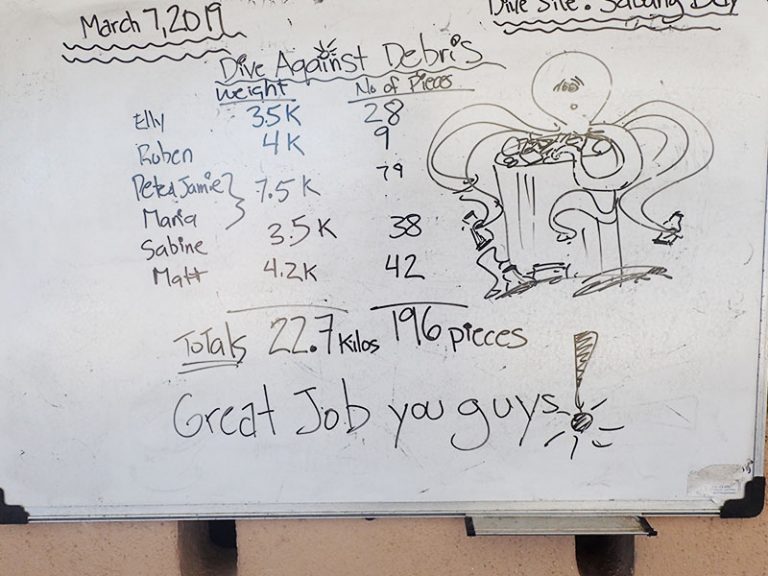 March 7, 2019
Dive Site: Sabang Bay
Dive Against Debris
Weight No of Pieces
Elly 3.5K 28
Ruben 4K 9
Pete & Jamie 7.5K 79
Maria
Sabine 3.5K 38
Matt 4.2K 42
ToTals 22.7 Kilos 196 pieces
Great Job you guys!